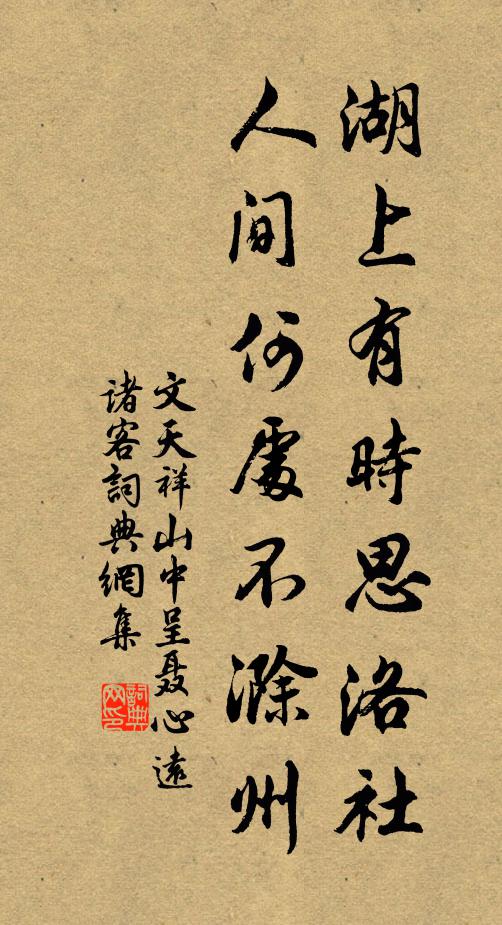 湖上有時思洛社
人間何處不滁州
文天祥山中呈聂心遠
諸客詞典網集
詞典网印